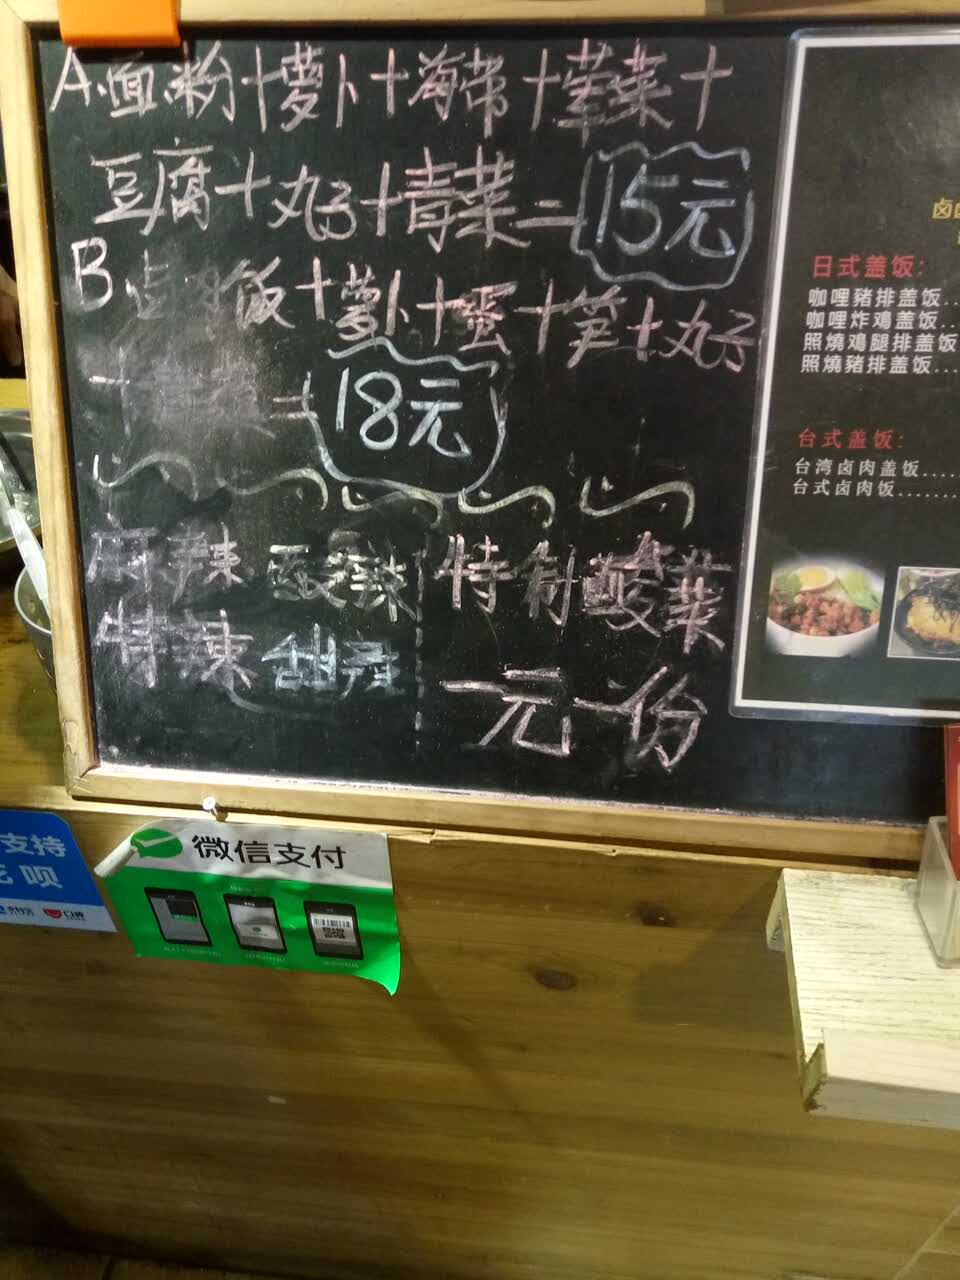 A.面粉十萝卜十海带十荤菜十
豆腐十丸子十青菜=15元
B卤肉饭十萝卜十蛋十笋十丸子
十青菜=18元
麻辣 酸辣
特辣 甜辣
特制酸菜
一元一份
日式盖饭:
咖哩豬排盖饭...
咖哩炸鳮盖饭..
照燒鳮腿排盖饭
照燒豬排盖饭...
台式盖饭:
台湾卤肉盖饭....
台式卤肉饭.......
微信支付
支持
呗
口碑